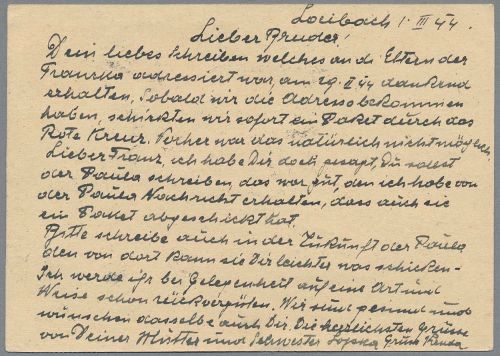 Laibach 1. III 44.
Lieber Bruder!
Dein liebes Schreiben welches an di. Eltern der
Franzka adressiert war, am 29. II 44 dankend
erhalten. Sobald wir die Adress bekommen
haben, schickten wir sofort ein Paket durch das
Rote Kreuz. Vorher war das natürlich nicht möglich.
Lieber Franz, ich habe Dir doch gesagt, Du sollst
der Paula schreiben, das war gut, den ich habe von
der Paula Nachricht erhalten, dass auch sie
ein Paket abgeschickt hat.
Bitte schreibe auch in der Zukunft der Paula
den von dort kann sie Dir leichter was schicken.
Ich werde ihr bei Gelegenheit auf eine Art und
Weise schon rückvergüten. Wir sind gesund und
wünschen dasselbe auch Dir. Die herzlichsten Grüsse
von Deiner Mutter und Schwester Gruss